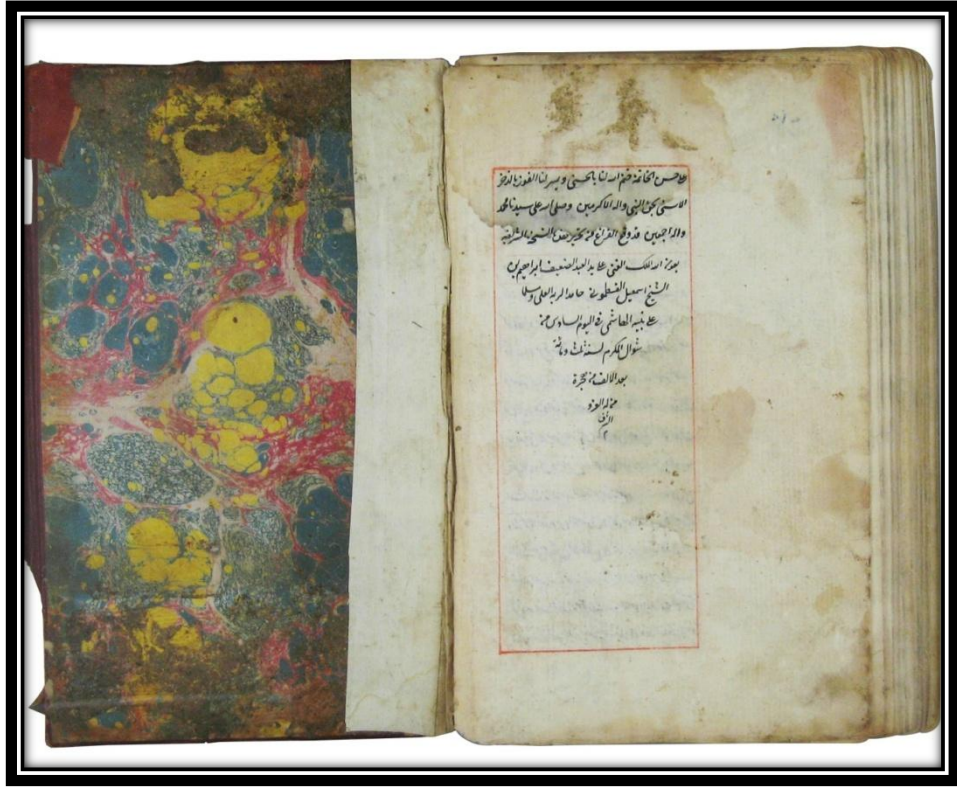 على حسن الخاتمة ختم الله لنا بالحسنى ويسر لنا الفوز بالذخر
الاسنى بحق النبى واله الاكرمين وصلى الله على سيدنا محمد
واله اجمعين قد وقع الفراغ من تحرير هذه النسخة الشريفة
بعون الله الملك الغنى على يد العبد الضعيف ابراهيم بن
الشيخ اسمعيل القسطمونى حامدا لربه العلى ومسلما
على نبيه الهاشمى فى اليوم السادس من
شوال المكرم لسنة ثلث ومائة
بعد الالف من هجرة
من له العز و
الشرف
م